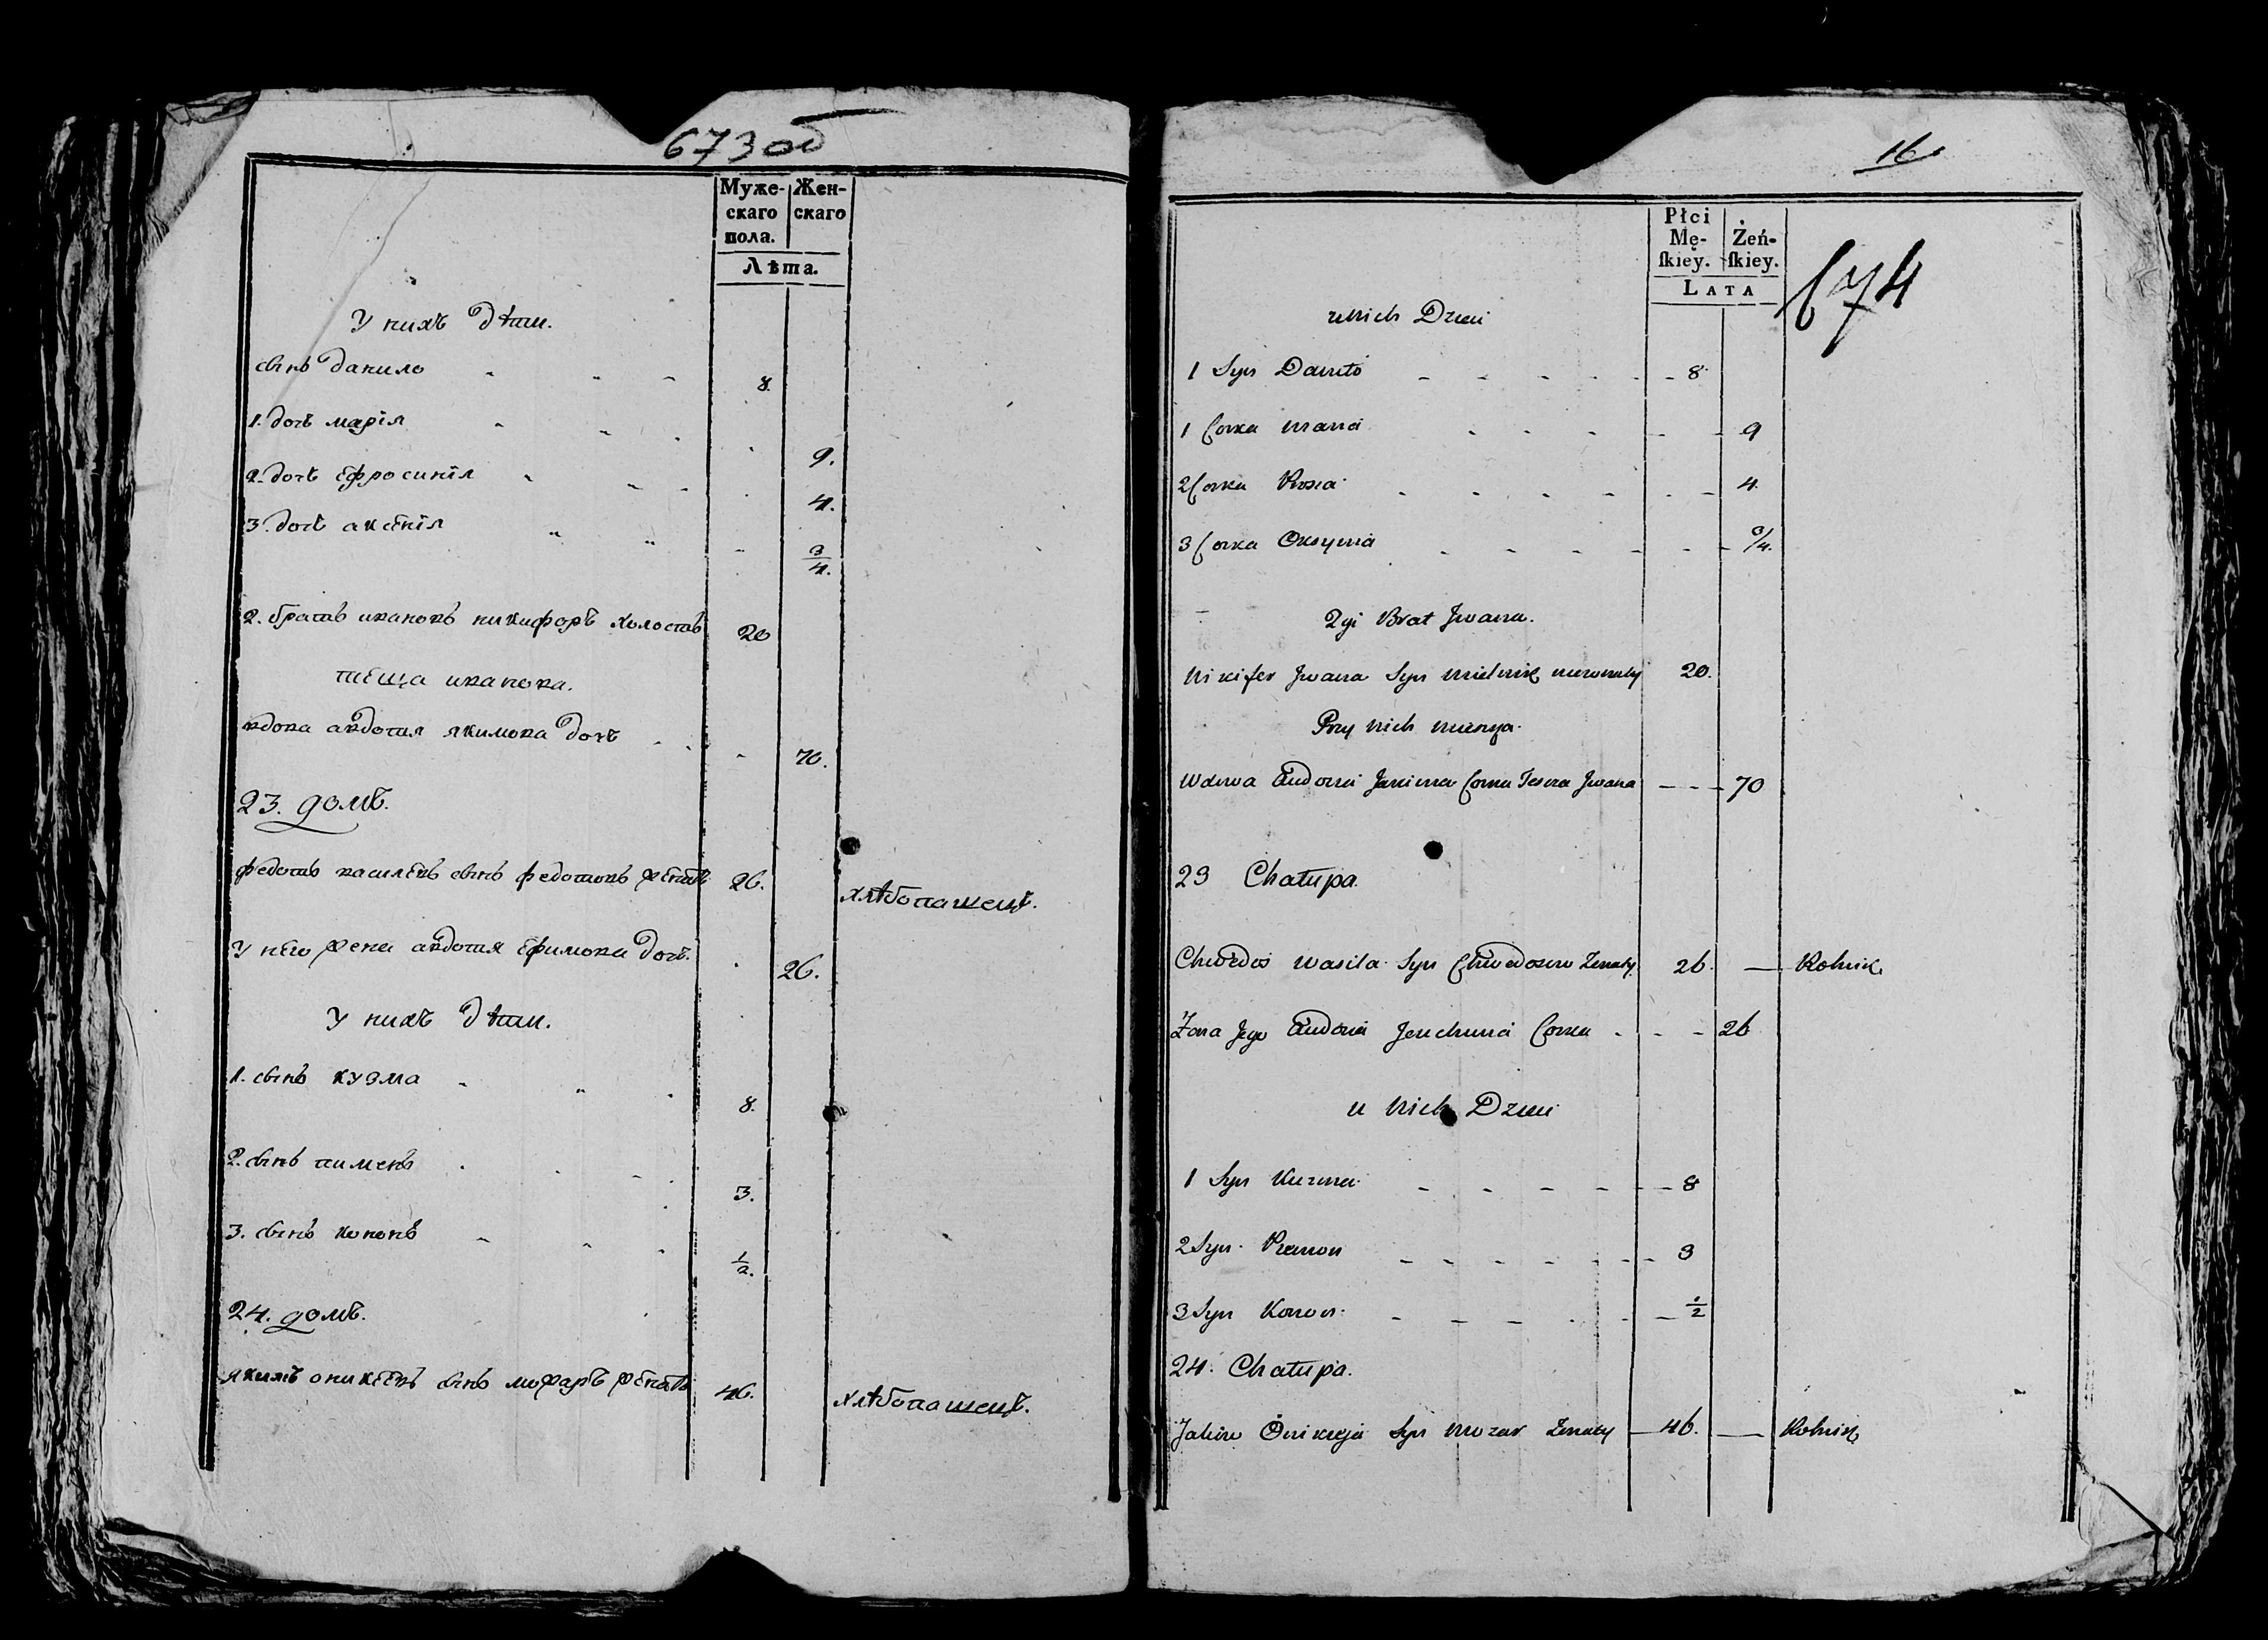 673об
Муже- Жен-
скаго скаго
пола.
Лѣта.
У нихъ дѣти.
сынъ данило 8.
1. дочь марія 9.
2. дочь Ефросинія 4.
3. дочь аксѣнія 3/4.
2. братъ ивановъ никифоръ холостъ 20
тѣща иванова.
вдова авдотия якимова дочь 70.
23. домъ.
федотъ василѣвъ сынъ федотовъ жѣнатъ 26. хлѣбопашецъ.
У нѣго жена авдотия Ефимова дочь. 26.
У нихъ дѣти.
1. сынъ кузма 8.
2. сынъ пименъ 3.
3. сынъ кононъ 1/2.
24. домъ.
якимъ оникѣѣвъ сынъможаръ жѣнатъ 46. хлѣбопашецъ.
16
Płci
Mę- Żeń-
skiey. skiey.
LATA
674
u Nich Dzieci
1 Syn Daniło 8
1 Corka Maria 9
2 Corka Rosia 4
3 Corka Oksynia 3/4.
2gi Brat Jwana.
Nikifer Jwana Syn Mielnik niezonaty 20.
Przy Nich
Wdowa Eudocia Jakima Corka Jwana 70
23 Chałupa
Chwedos Wasila Syn Chwedosow Zonaty 26. Rolnik
Zona Jego Eudocia Jeuchima Corka 26
u Nich Dzieci
1 Syn Kuzma 8
2 Syn Piemon 3
3 Syn Konon 1/2
24. Chałupa.
Jakim Onikieja Syn Mozar Zonaty 46. Rolnik